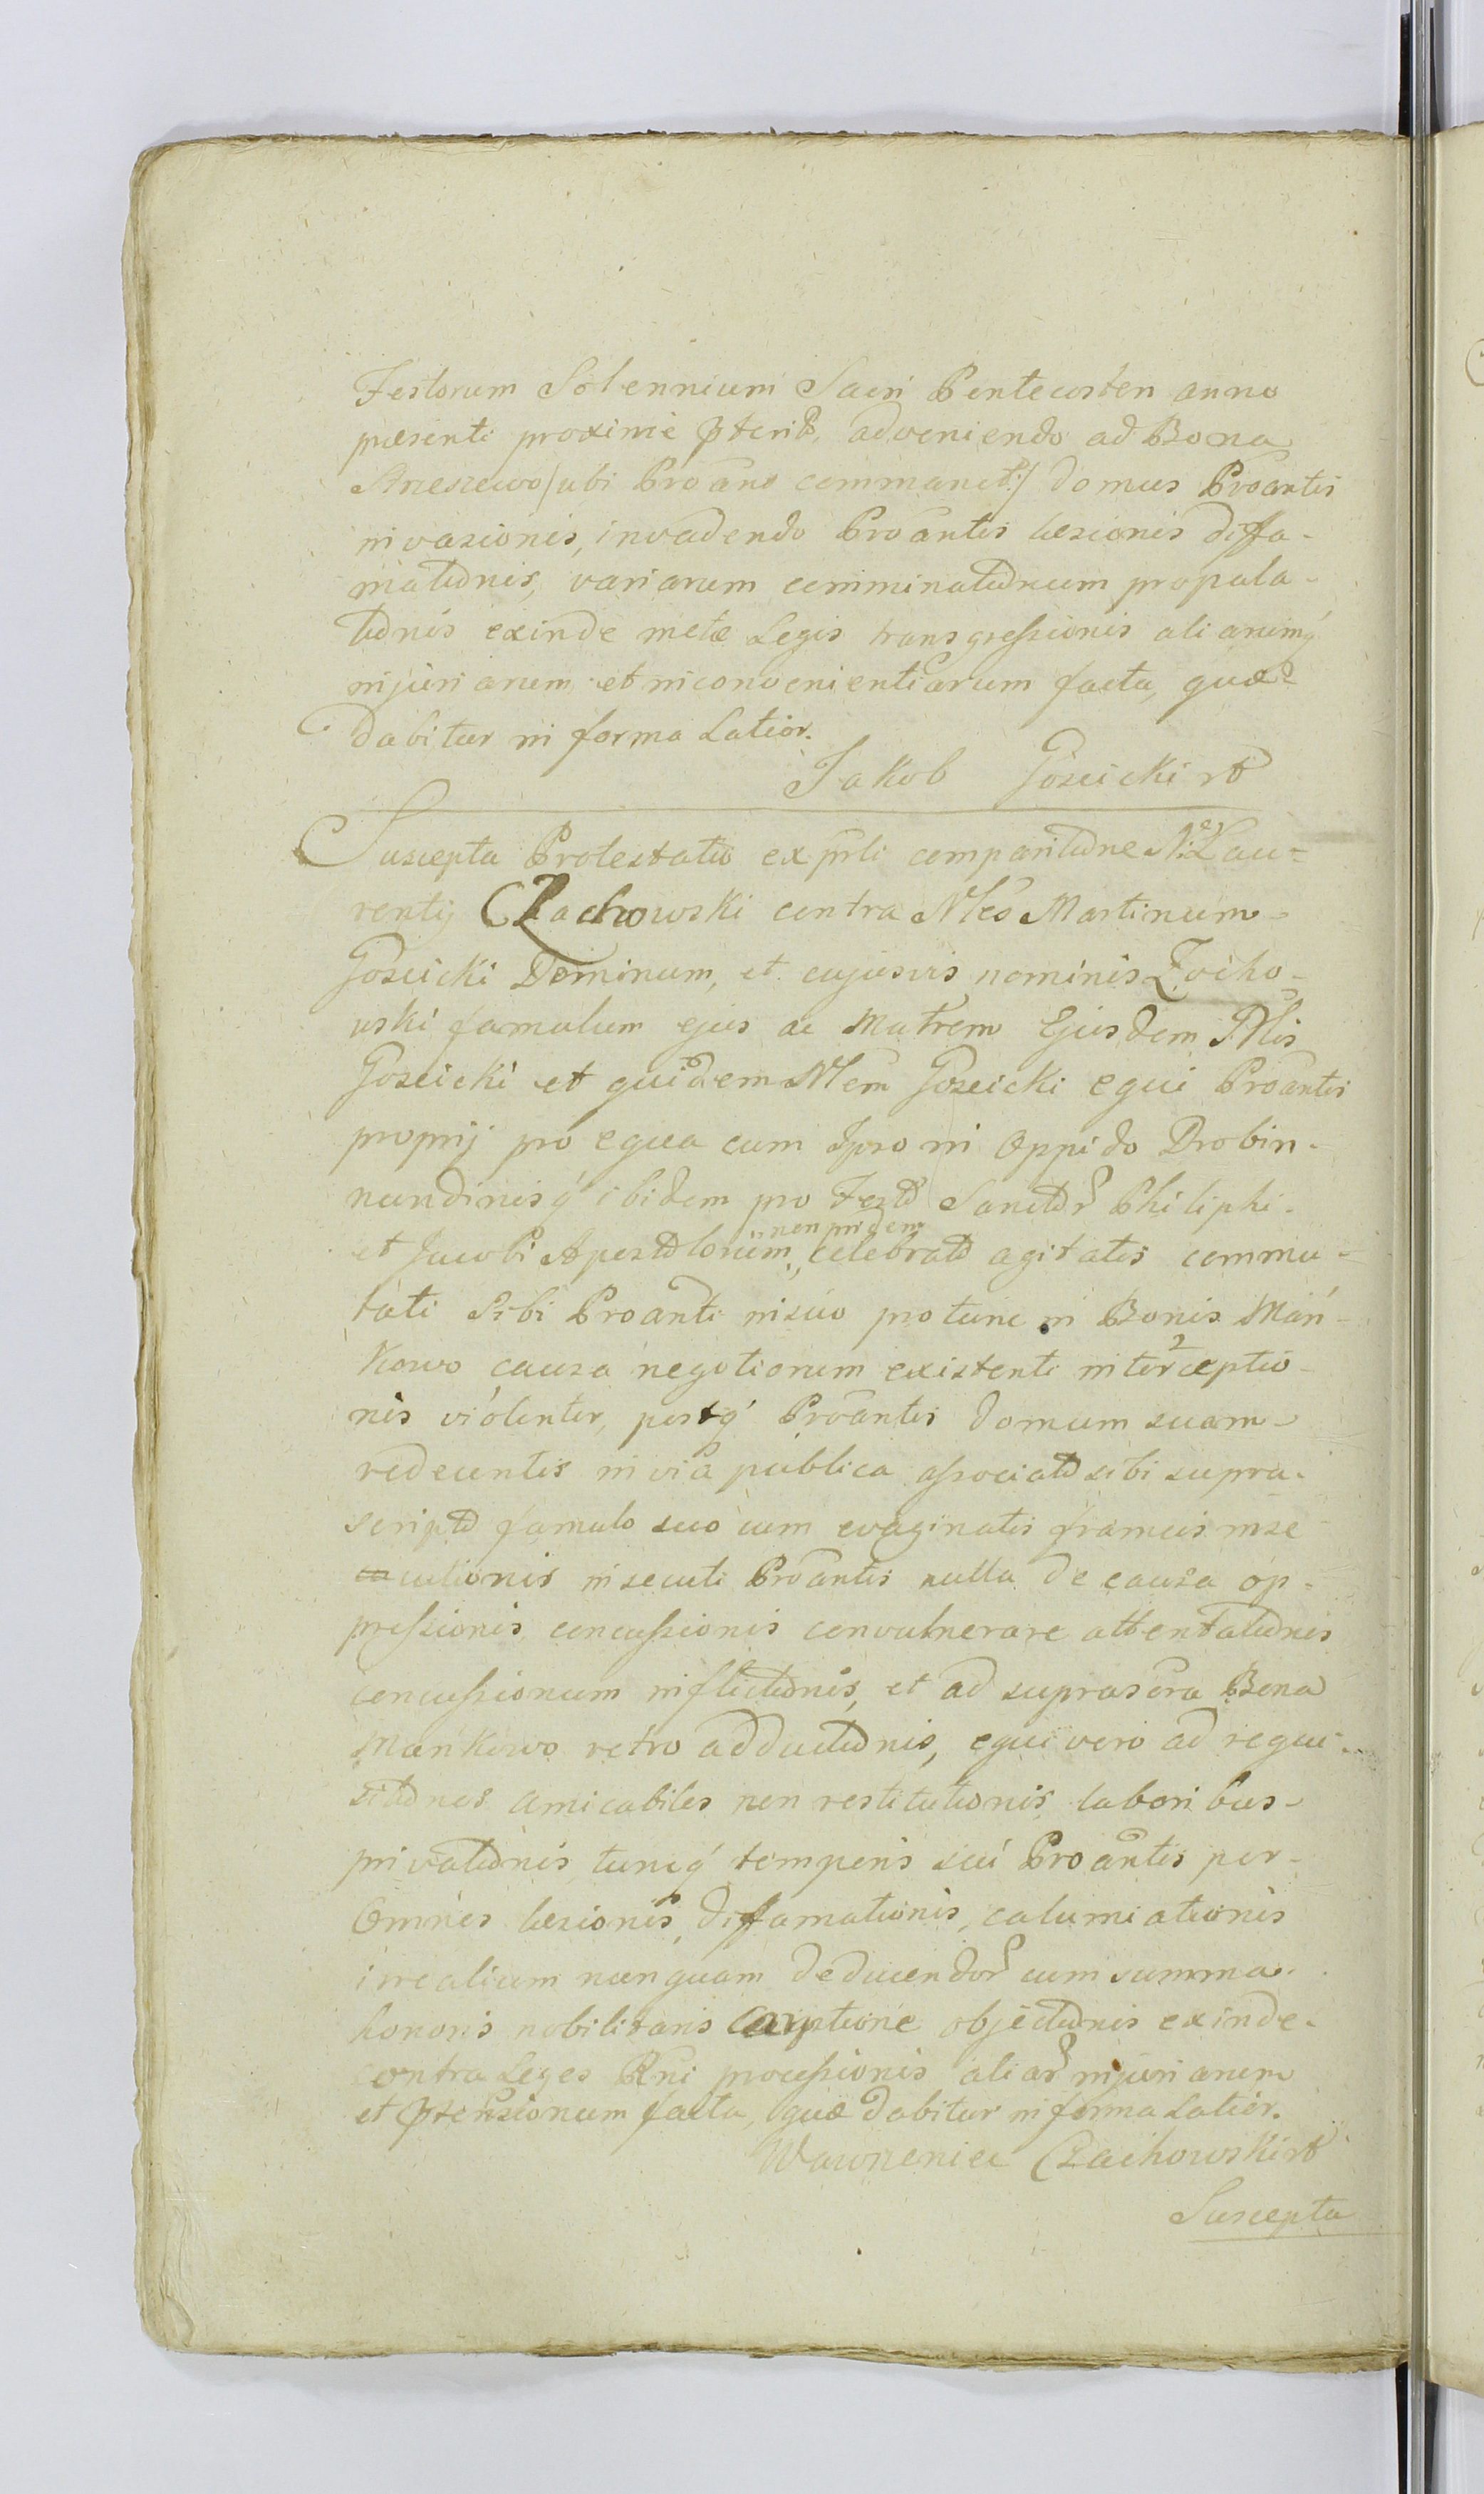 Festorum Solennium Sacri Pentecosten anno
præsenti proxime pterito, adveniendo ad Bona
Strzeszewo /ubi Proans commanet:/ domus Proantis
invasionis, invadendo Proantis læsionis diffa-
mationis, variarum comminationum propala-
tionis exinde metæ Legis transgressionis aliarumq
injuriarum et inconvenientiarum facta, quæ
dabitur in forma Latior.
Jakob Gościcki
Suscepta Protestatio ex prli comparitione Lau-
rentij Czachowski contra Nles Martinum
Gościcki Dominum, et cujusvis nominis Zocho-
wski famulum ejus ac Matrem Ejusdem Nlis
Gościcki et quidem Nlem Gościcki equi Proantis
proprij pro equa cum Ipso in Oppido Drobin
nundinisq ibidem pro Festo Sanctor Philiphi
et Jacobi Apostolorum, non pridem celebrato agitatis commu-
tati Sibi Proanti in suo pro tunc in Bonis Mań-
kowo causa negotiorum existenti interceptio-
nis violenter, postq Proantis domum suam
redeuntis in via publica associato sibi supra-
scripto famulo suo cum evaginatis frameis inse
cutionis insecuti Proantis nulla de causa op-
pressionis concussionis convulnerare attentationis
concussionum inflictionis, et ad suprascra Bona
Mańkowo retro adductionis, equi vero ad requi-
sitiones amicabiles non restitutionis laboribus
privationis, tuncq temporis sui Proantis per
Omnes læsionis, diffamationis, calumiationis
irrealium nunquam deducendor cum summa
honoris nobilitaris objectionis exinde
contra Leges Rni processionis aliar injuriarum
et ptensionum facta, quæ dabitur in forma Latior.
Wawrzeniec Czachowski
Suscepta